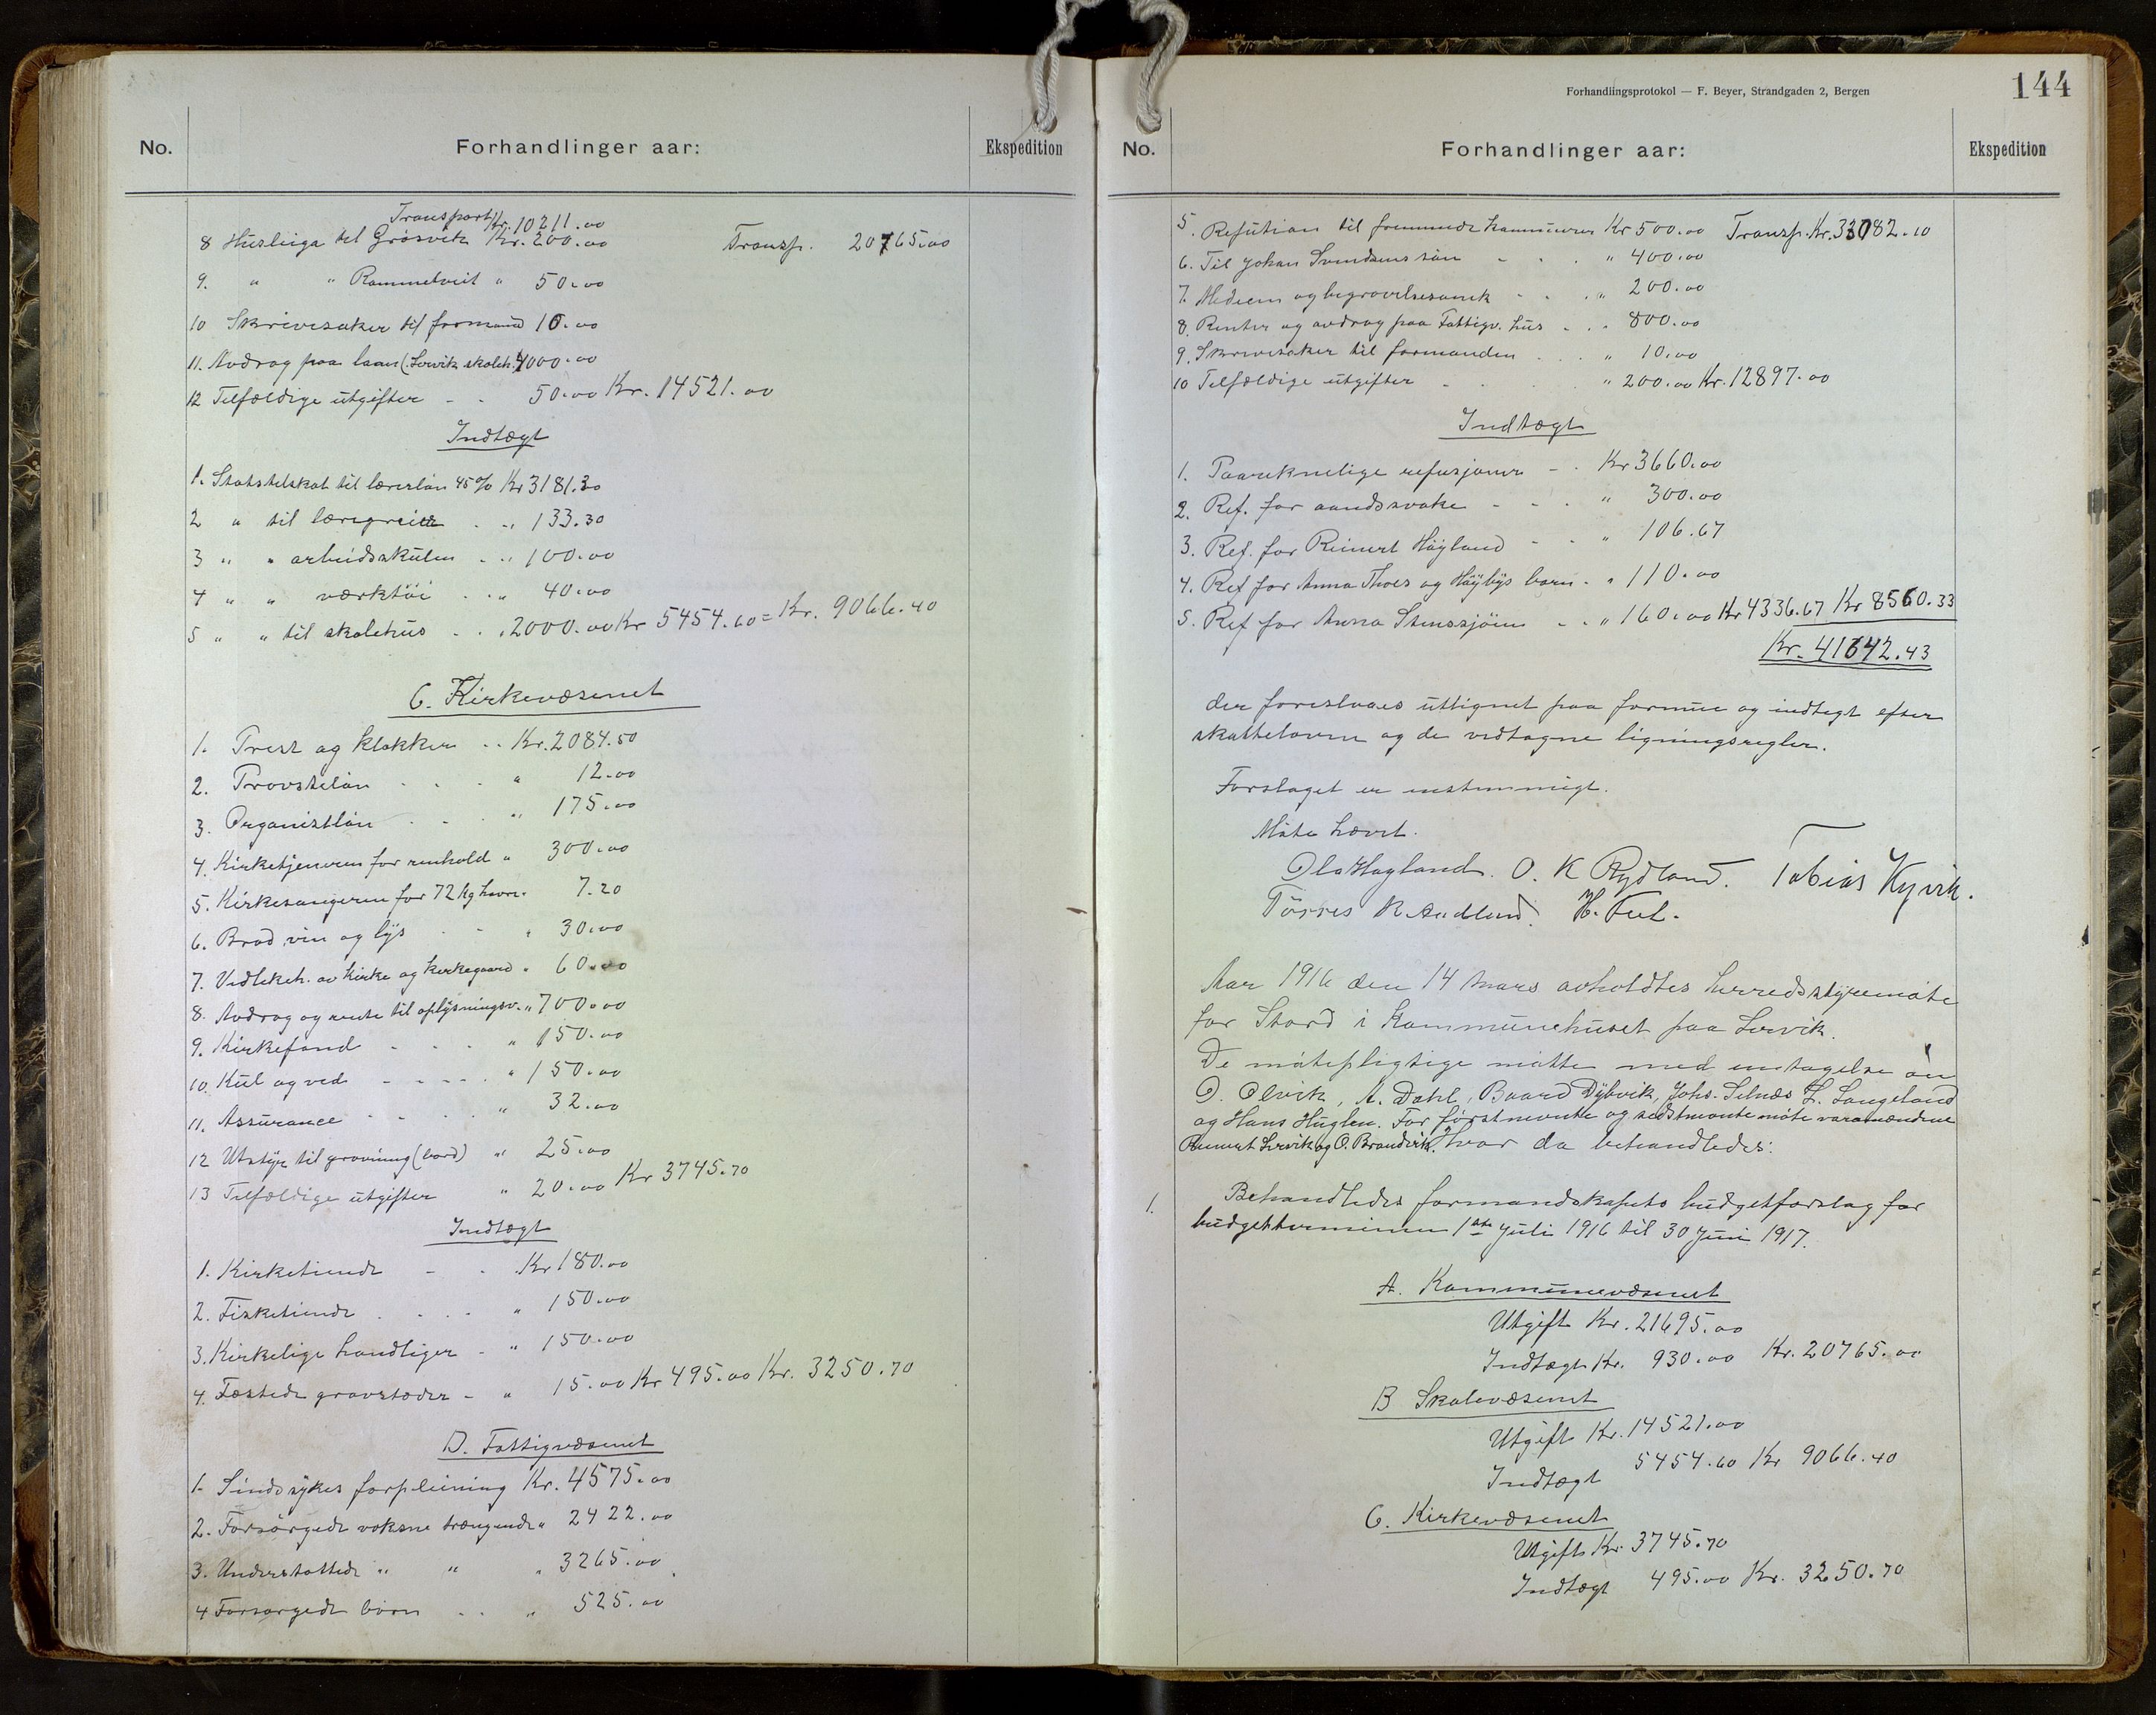 No.
Forhandlinger aar:
Ekspedition
Transport Kr. 10211.00
8 Husleiga til Grösvik Kr. 200.00 Transp. 20765.00
9. " " Rommetveit " 50.00
10 Skrivesaker til formand 10.00
11. Avdrag paa laan (Lervik skoleh. 4000.00
12 Tilfældige utgifter - - 50.00 Kr. 14521.00
Indtægt
1. Statstilskot til lærerløn 45% Kr 3181.30
2 " til læregreier . . " 133.30
3 " " arbeidsskulen . . " 100.00
4 " " værktöi . . " 40.00
5 " " til skolehus . . " 2000.00 Kr 5454.60 = Kr. 9066.40
C. Kirkevæsenet
1. Prest og klokker . . Kr. 2084.50
2. Provsteløn . . . " 12.00
3. Organistløn . . . " 175.00
4. Kirketjeneren for renhold " 300.00
5. Kirkesangeren for 72 kg havre " 7.20
6. Brød vin og lys - - " 30.00
7. Vedlikeh. av kirke og kirkegaard " 60.00
8. Avdrag og rente til oplysningsv. " 700.00
9. Kirkefond - - - " 150.00
10. Kul og ved - - - - - " 150.00
11. Assurance - - - - " 32.00
12 Utstyr til gravning (bord) " 25.00
13 Tilfældige utgifter " 20.00 Kr 3745.70
Indtægt
1. Kirketiende - - Kr 180.00
2. Fisketiende . . . - " 150.00
3. Kirkelige handliger - " 150.00
4. Festede gravstæder - " 15.00 Kr 495.00 Kr. 3250.70
D. Fattigvæsenet
1- Sindssykes forpleining Kr. 4575.00
2. Forsørgede voksne trængende " 2422.00
3. Understøttede " " " 3265.00
4 Forsørgede börn . . " 525.00
Forhandlingsprotokol — F. Beyer, Strandgaden 2, Bergen
144
No.
Forhandlinger aar:
Ekspedition
5. Refution til fremmede kommuner Kr 500.00 Transp. Kr. 33082.10
6. Til Johan Svendsens søn - . . " 400.00
7. Medecin og begravelsesomk - . . " 200.00
8. Renter og avdrag paa Fattigv. hus . . . 800.00
9. Skrivesaker til formanden . . . " 10.00
10 Tilfældige utgifter - . . . . " 200.00 Kr. 12897.00
Indtægt
1. Paareknelige refusjoner - . Kr 3660.00
2. Ref. for aandssvake - - - " 300.00
3. Ref. for Reinert Höyland - - " 106.67
4. Ref for Anna Thoes og Höybys barn - " 110.00
5. Ref for Anna Stenssjöen - - " 160.00 Kr 4336.67 Kr 8560.33
Kr. 41642.43
der foreslaaes utlignet paa formue og indtegt efter
skatteloven og de vedtagne ligningsregler.
Forslaget er enstemmigt.
Møte hævet.
Ola Hagland. O. K Rydland. Tobias Kyvik.
Törres R Aadland. H. Tul.
Aar 1916 den 14 mars avholdtes herredsstyremøte
for Stord i kommunehuset paa Lervik.
De møtepligtige møtte med undtagelse av
O. Olvik, A. Dahl, Baard Dybvik, Johs. Selnæs L. Langeland
og Hans Huglen. For förstnevnte og sidstnevnte møte varamændene
Reinert Lervik og O. Brandvik. Hvor da behandledes:
1. Behandledes formandskapets budgetforslag for
budgetterminen 1ste juli 1916 til 30 juni 1917.
A. Kommunevæsenet
Utgift Kr. 21695.00
Indtægt Kr. 930.00 Kr. 20765.00
B Skolevæsenet
Utgift Kr. 14521.00
Indtægt 5454.60 Kr 9066.40
C. Kirkevæsenet
Utgift Kr. 3745.70
Indtægt 495.00 Kr. 3250.70